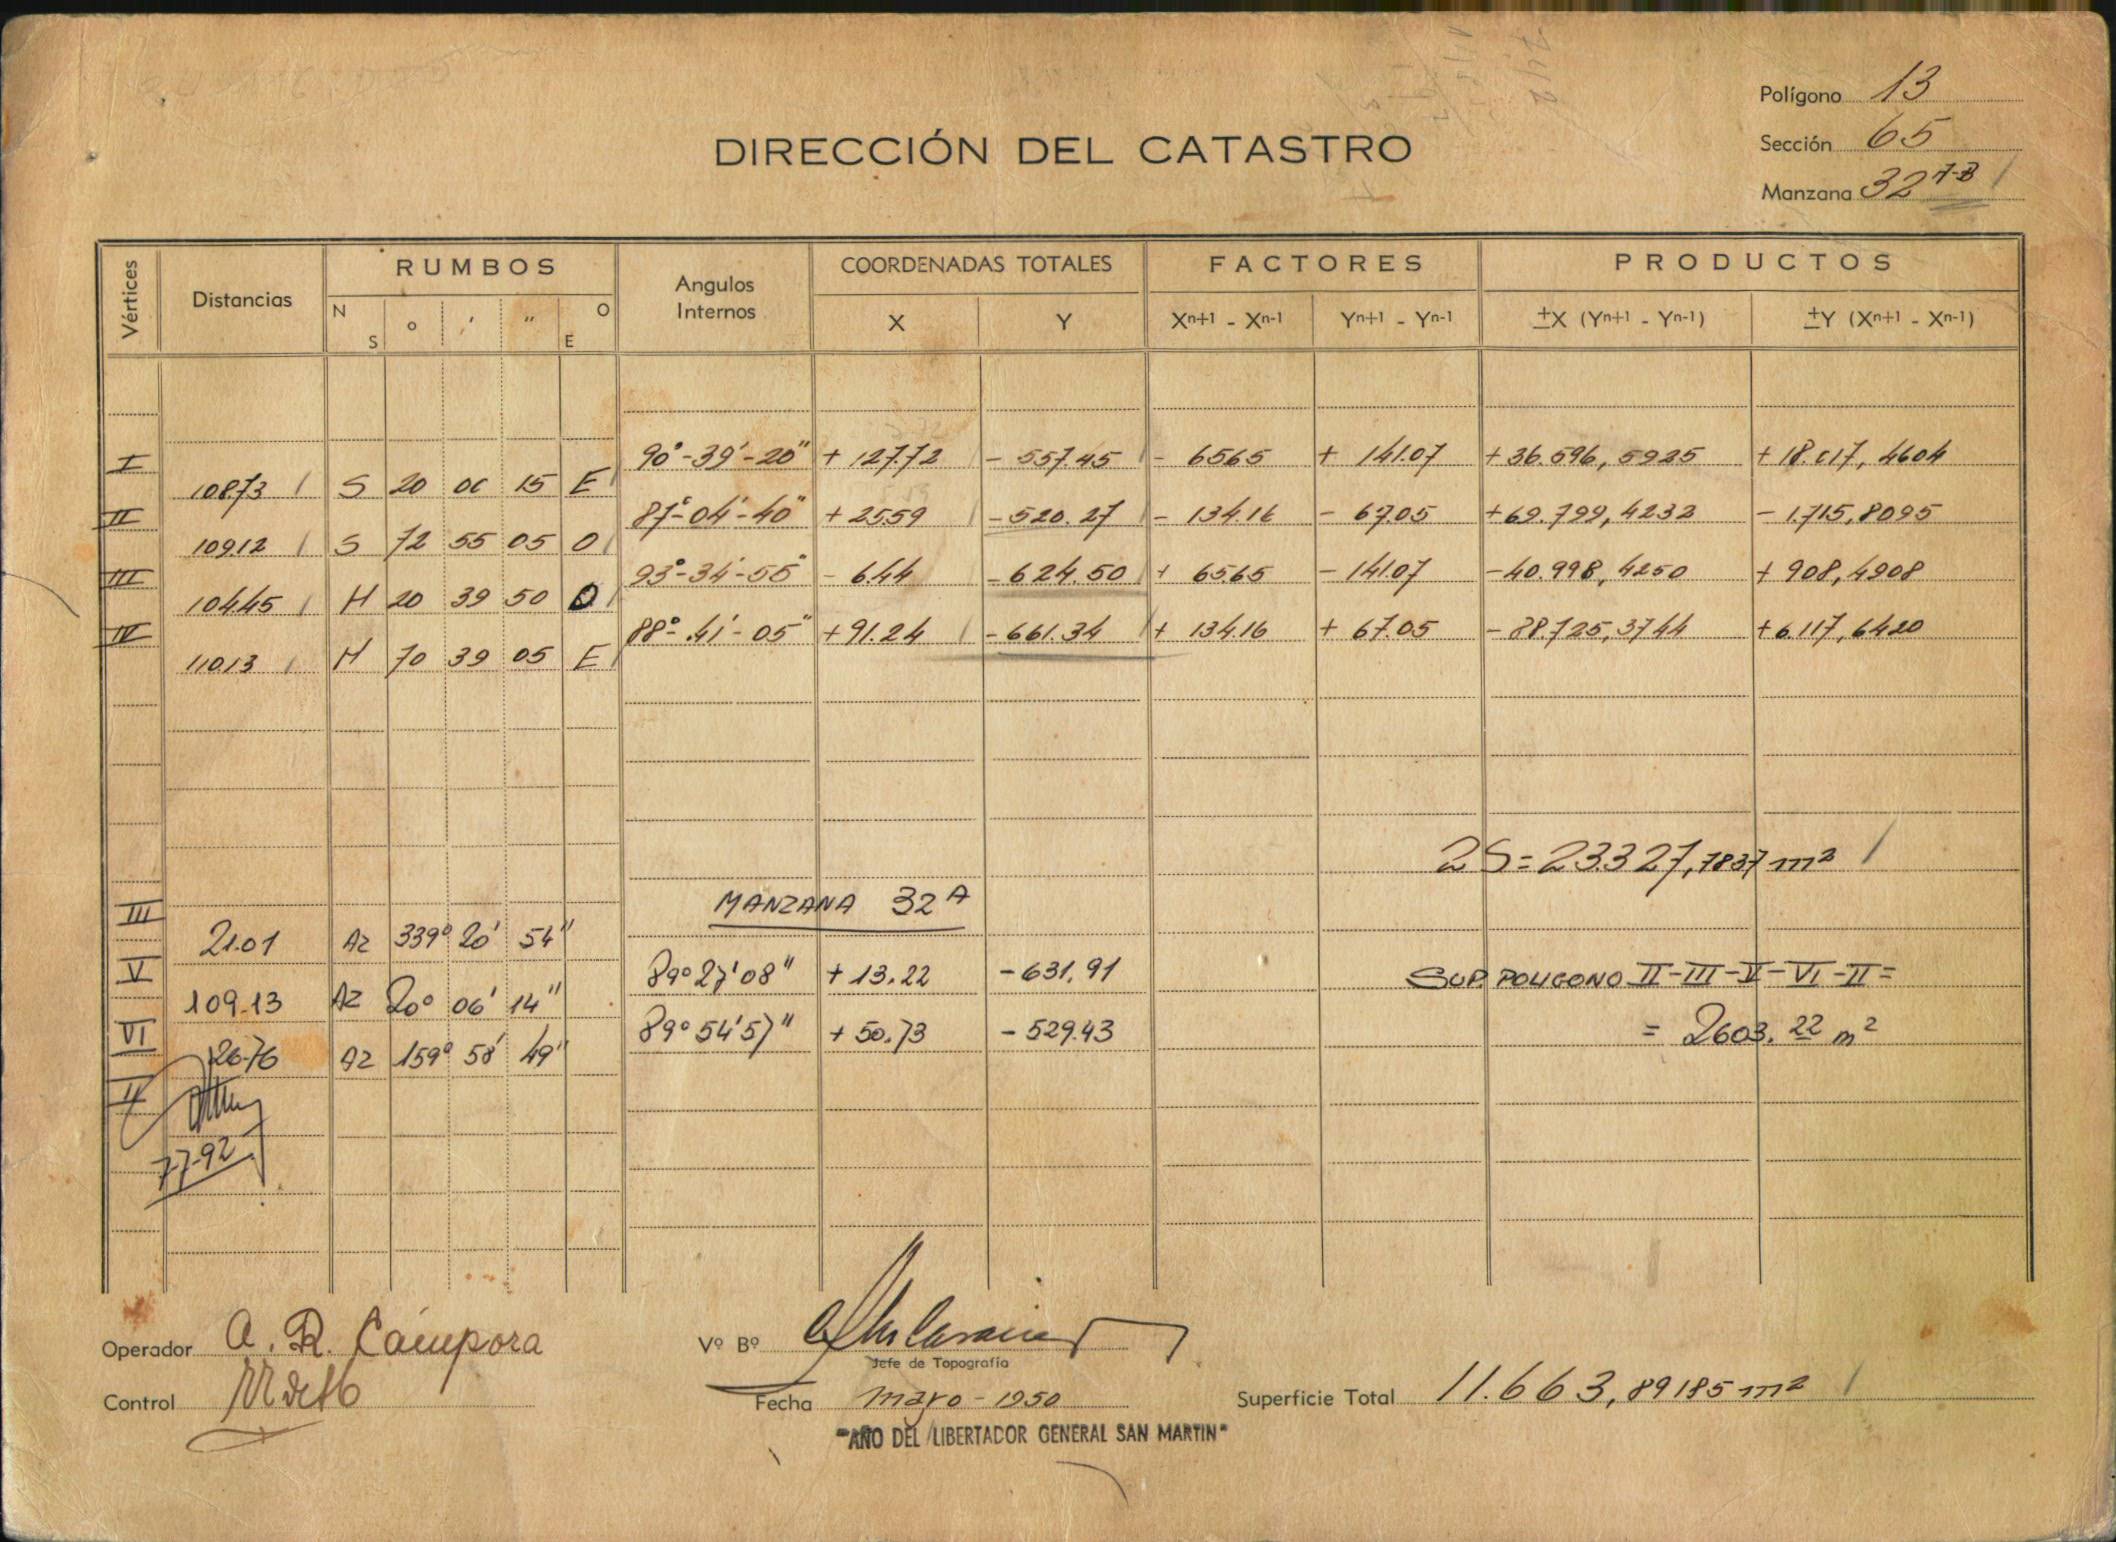 Polígono 13
Sección 65
DIRECCIÓN DEL CATASTRO
Manzana 32 A-B
Vértices Distancias RUMBOS Angulos Internos COORDENADAS TOTALES FACTORES PRODUCTOS
N S ° ' " O E X Y Xⁿ⁺¹ - Xⁿ⁻¹ Yⁿ⁺¹ - Yⁿ⁻¹ ±X (Yⁿ⁺¹ - Yⁿ⁻¹) ±Y (Xⁿ⁺¹ - Xⁿ⁻¹)
I 90°-39'-20" + 127.72 - 557.45 - 65.65 + 141.07 + 36.596,5925 + 18.017,4604
108.73 S 20 00 15 E
II 87°-04'-40" + 25.59 - 520.27 - 134.16 - 67.05 + 69.799,4232 - 1.715,8095
109.12 S 72 55 05 O
III 93°-34'-55" - 6.44 - 624.50 + 65.65 - 141.07 - 40.998,4250 + 908,4908
104.45 N 20 39 50 O
IV 88°-41'-05" + 91.24 - 661.34 + 134.16 + 67.05 - 88.725,3744 + 6.117,6420
110.13 N 70 39 05 E
2S = 23.327,7837 m²
MANZANA 32 A
III
21.01 Az 339° 20' 54"
V 89° 27' 08" + 13.22 - 631.91 SUP. POLIGONO II-III-V-VI-II =
109.13 Az 20° 06' 14"
VI 89° 54' 57" + 50.73 - 529.43 = 2603.22 m²
26.76 Az 159° 58' 49"
II
7-7-92
Operador A. R. Cámpora Vº Bº
Jefe de Topografía
Control
Fecha mayo - 1950 Superficie Total 11.663,89185 m²
"AÑO DEL LIBERTADOR GENERAL SAN MARTIN"